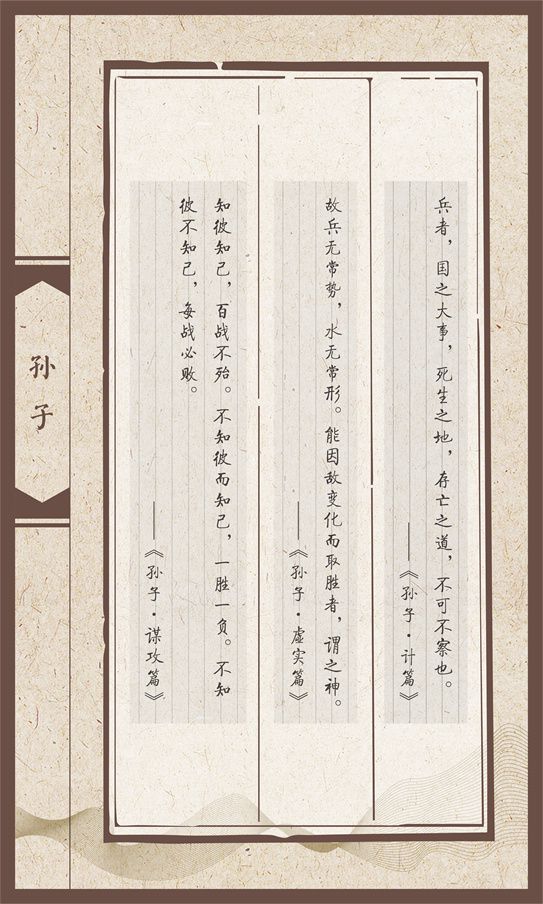 兵者，国之大事，死生之地，存亡之道，不可不察也。
——《孙子·计篇》
故兵无常势，水无常形。能因敌变化而取胜者，谓之神。
——《孙子·虚实篇》
知彼知己，百战不殆。不知彼而知己，一胜一负。不知
彼不知己，每战必败。
——《孙子·谋攻篇》
孙子